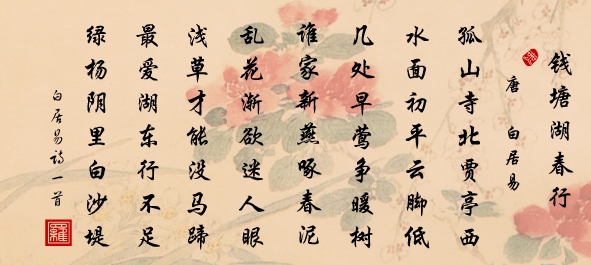 钱塘湖春行
唐 白居易
孤山寺北贾亭西
水面初平云脚低
几处早莺争暖树
谁家新燕啄春泥
乱花渐欲迷人眼
浅草才能没马蹄
最爱湖东行不足
绿杨阴里白沙堤
白居易诗一首
羅